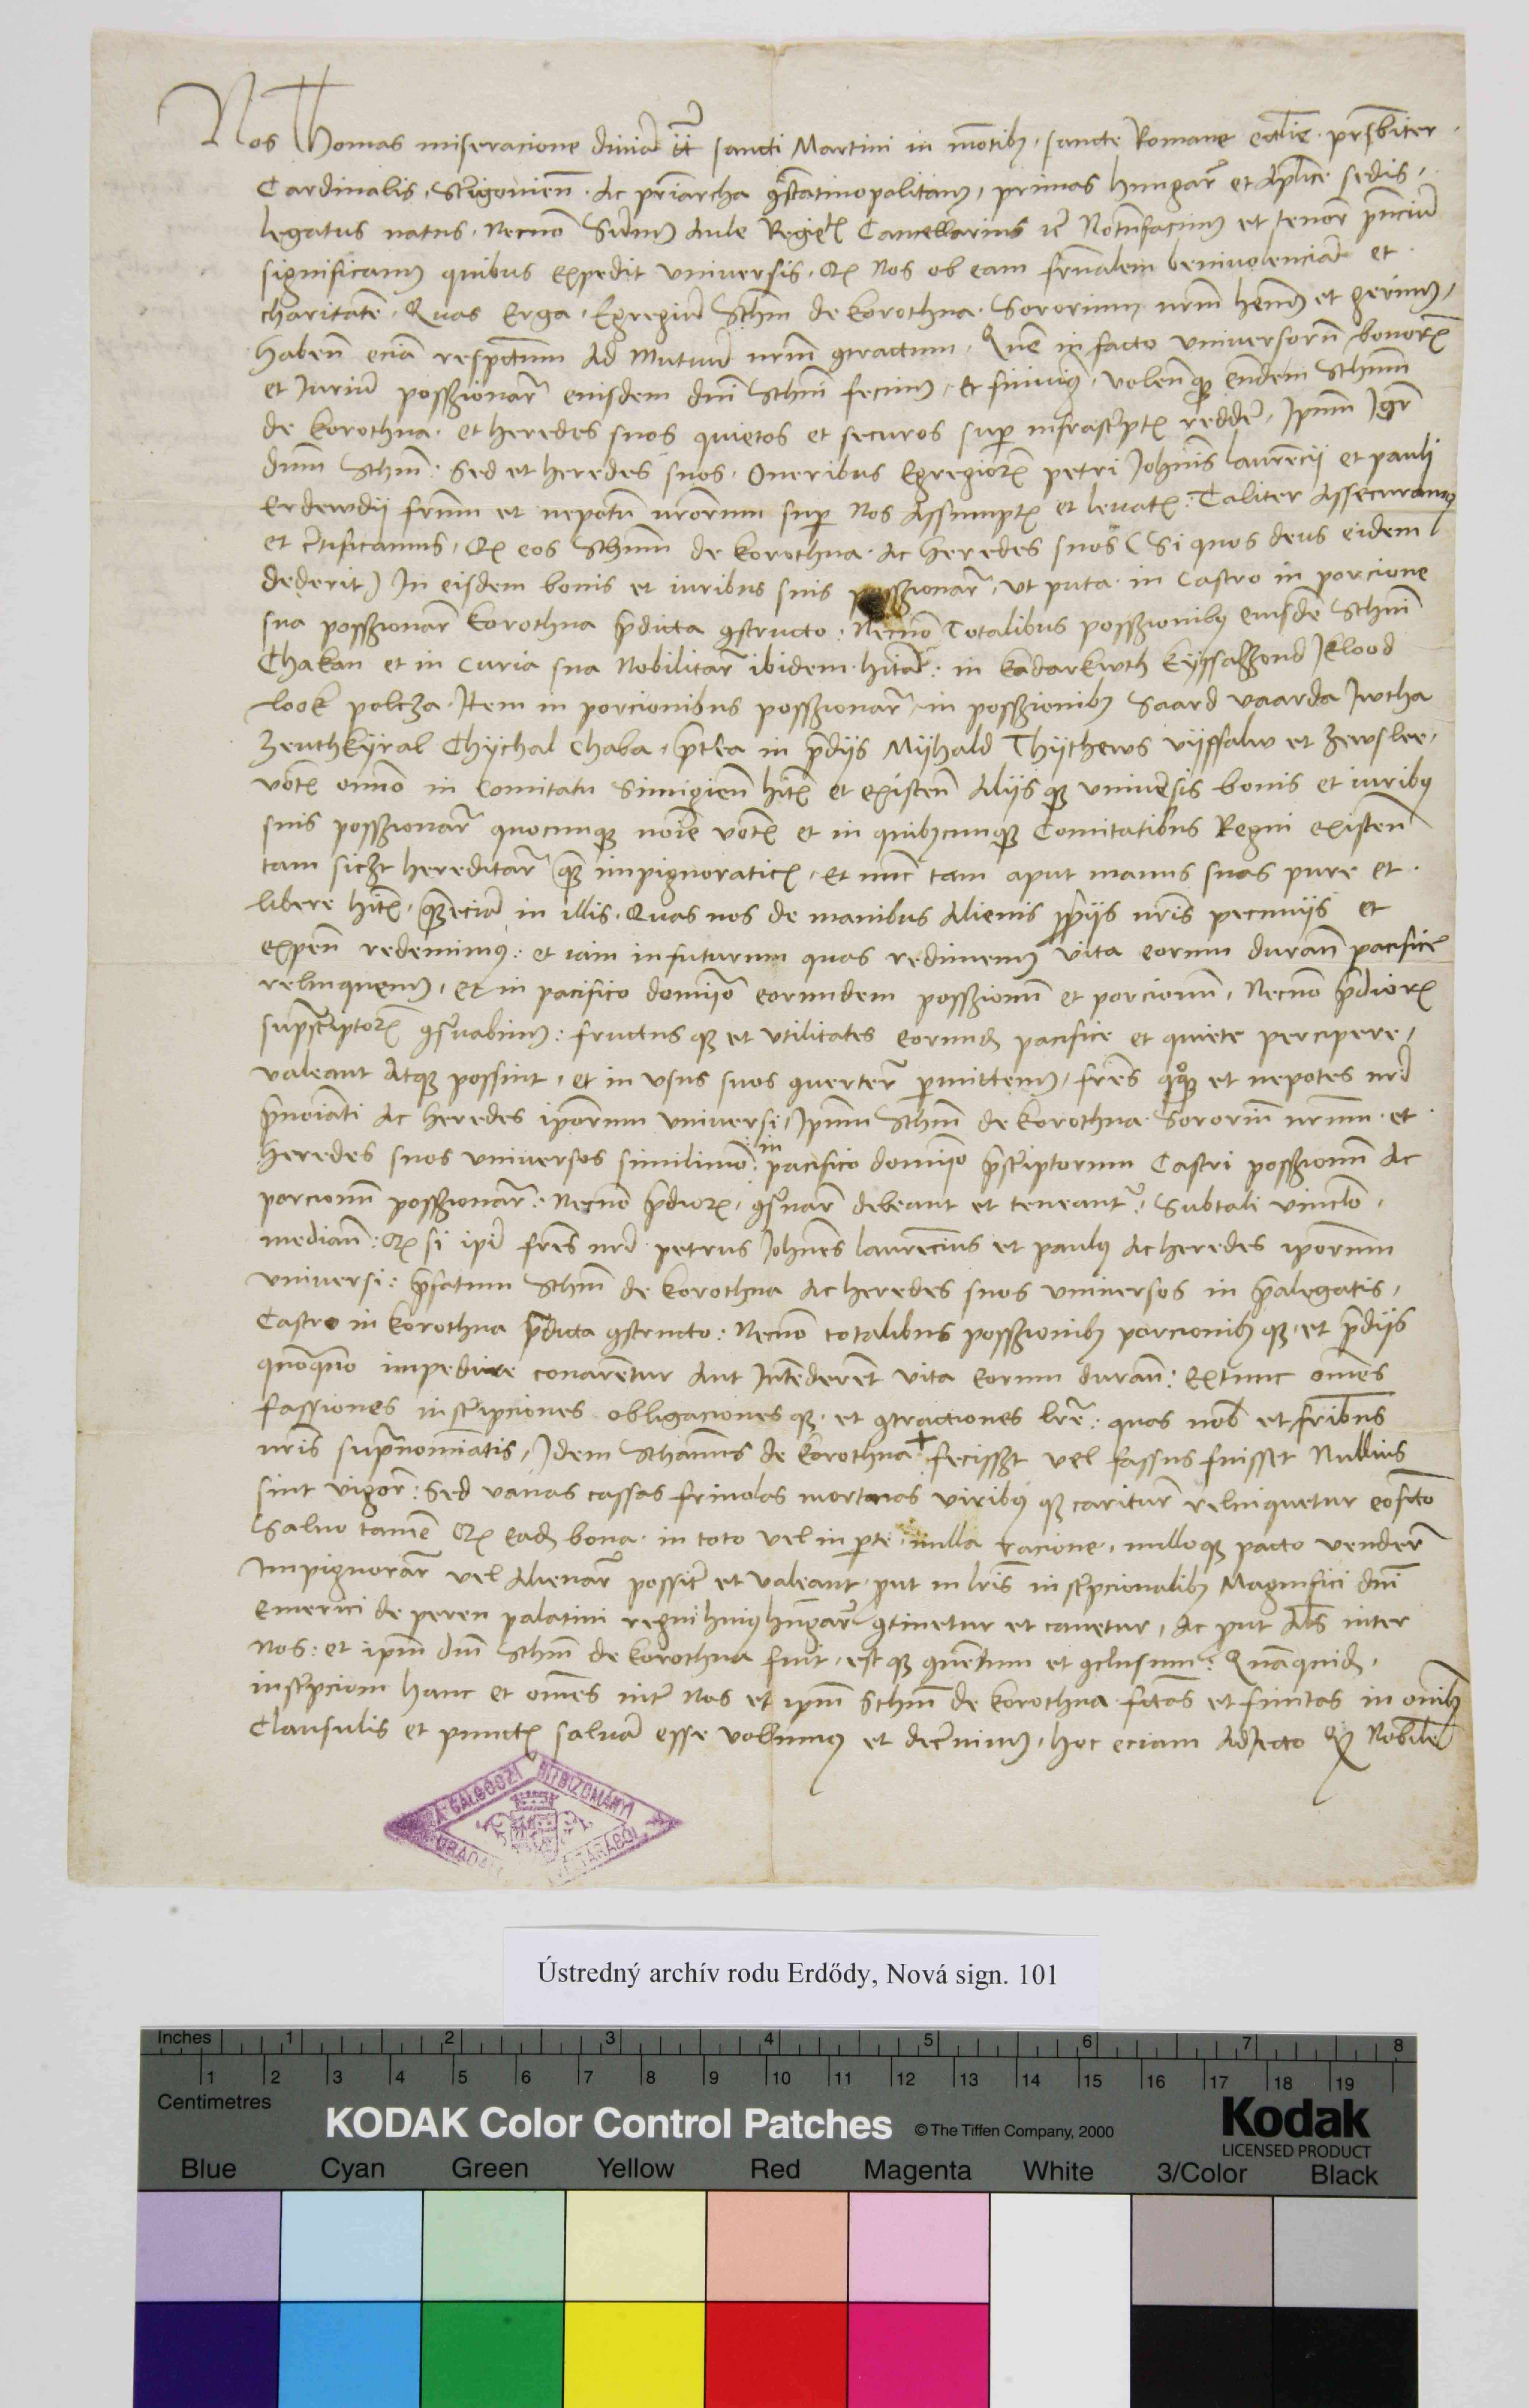 Nos Thomas miseracione divina tt sancti Martini in motibus sancte Romane ecclie prsbiter
Cardinalis, Strigonien Ac priarcha gstatinopolitanus, primas hungar et Aplice sedis,
legatus natus, Necno Summus Aule Regie Cancellarius Notumfacimus et tenor pncium
significamus quibus expedit universis, Nos ob eam frnalem benivolenciam et
charitate, Quas Erga, Egregium Sthm de korothna Sororium nrm hemus et gerimus,
Haben ecia respectum Ad Mutuum nrm gtractum, Que in facto universorum bonorum
et Iurium possionar eiusdem dni Sthni fecimus, Et finimus, volen eundem Sthmm
de korothna et heredes suos quietos et securos sup infrascriptis reddere, Ipum
dnm Sthm Sed et heredes suos, Oneribus Egregiorum petri Johnis laurencii et pauli
Erdewdii frum et nepotu nrorum sup Nos Assumptis et levatis Taliter Assecuramus
et crtificamus, eos Sthmm de korothna Ac heredes suos (Si quos deus eidem
dederit) In eisdem bonis et iuribus suis possionar, ut puta in Castro in porcione
sua possionar korothna pdicta gstructo: Necno Totalibus possionibus eiusde Sthni
Chakan et in curia sua Nobilitar ibidem hita: in kadarkwth kyssazzond Iklood
look polcza Item in porcionibus possionar, in possionibus Saard vaarda Iwtha
Zenthkyral Chychal Chaba, ptea in pdiis Myhald Thythews vyffalw et Zewslee,
votis omno in Comitatu Simigien hitis et existen Aliisque universis bonis et iuribus
suis possionar quocunque noie votis et in quibuscunque Comitatibus Regni existen
tam sict hereditar impignoraticis, et nunc tam aput manus suas pure et
libere hitis, eciam in illis, Quas nos de manibus Alienis ppriis nris pecuniis et
expen redemimus: et iam infuturum quas redimemus vita eorum duran pacifice
relinquemus, et in pacifico domino eorundem possionum et porcionum, Necno pdiorum
supscriptorum gsvabimus: fructusque et utilitates eorund pacifice et quiete percipere,
valeant Atque possint, et in usus suos gverter pmittemus, fres quoque et nepotes nri
pnoiati Ac heredes iporum universi, Ipum Sthm de korothna Sororium nrum et
heredes suos universos similimo: in pacifico domino pscriptorum Castri possionum Ac
porcionum possionar: Necno pdiorum, gsvar debeant et teneant, Subtali vinclo,
median: si ipi fres nri petrus Johnes laurencius et paulus Ac heredes iporumm
universi: pfatum Sthm de korothna Ac heredes suos universos in palegatis,
Castro in korothna pdicta gstructo: Necno totalibus possionibus porcionibusque, et pdiis
quoquo impedire conarentur Aut Intederet vita eorum duran: Extunc omes
fassiones inscripciones obligacionesque et gtractiones lre: quas nob et fribus
nris supnominatis, Idem Sthanus de korothna + fecisset vel fassus fuisset Nullius
sint vigor: Sed vanas cassas frivolas mortuas viribusque caritur relinquetur eofcto
Salvo tame ead bona in toto vel in pte nulla racione, nulloque pacto vender
Impignorar vel Alienar possit et valeant put in lris inscripcionalibus Magnifici dni
Emerici de peren palatini regni huius hungar gtinetur et cavetur, Ac put Als inter
Nos: et ipm dm Sthm de korothna fuit, estque gventum et gclusum: Quaquid,
inscripciom hanc et omes inter Nos et ipm Sthm de korothna fctas et finitas in omibus
Clausulis et punctis salvam esse volumus et decrnimus, hoc eciam Adiecto Nobile
A GALGÓCZI HITBIZOMÁNYI
URADALOM LEVÉLTÁRÁBÓL
Ústredný archív rodu Erdődy, Nová sign. 101
Inches 1 2 3 4 5 6 7 8
1 2 3 4 5 6 7 8 9 10 11 12 13 14 15 16 17 18 19
Centimetres
KODAK Color Control Patches © The Tiffen Company, 2000 Kodak
LICENSED PRODUCT
Blue Cyan Green Yellow Red Magenta White 3/Color Black